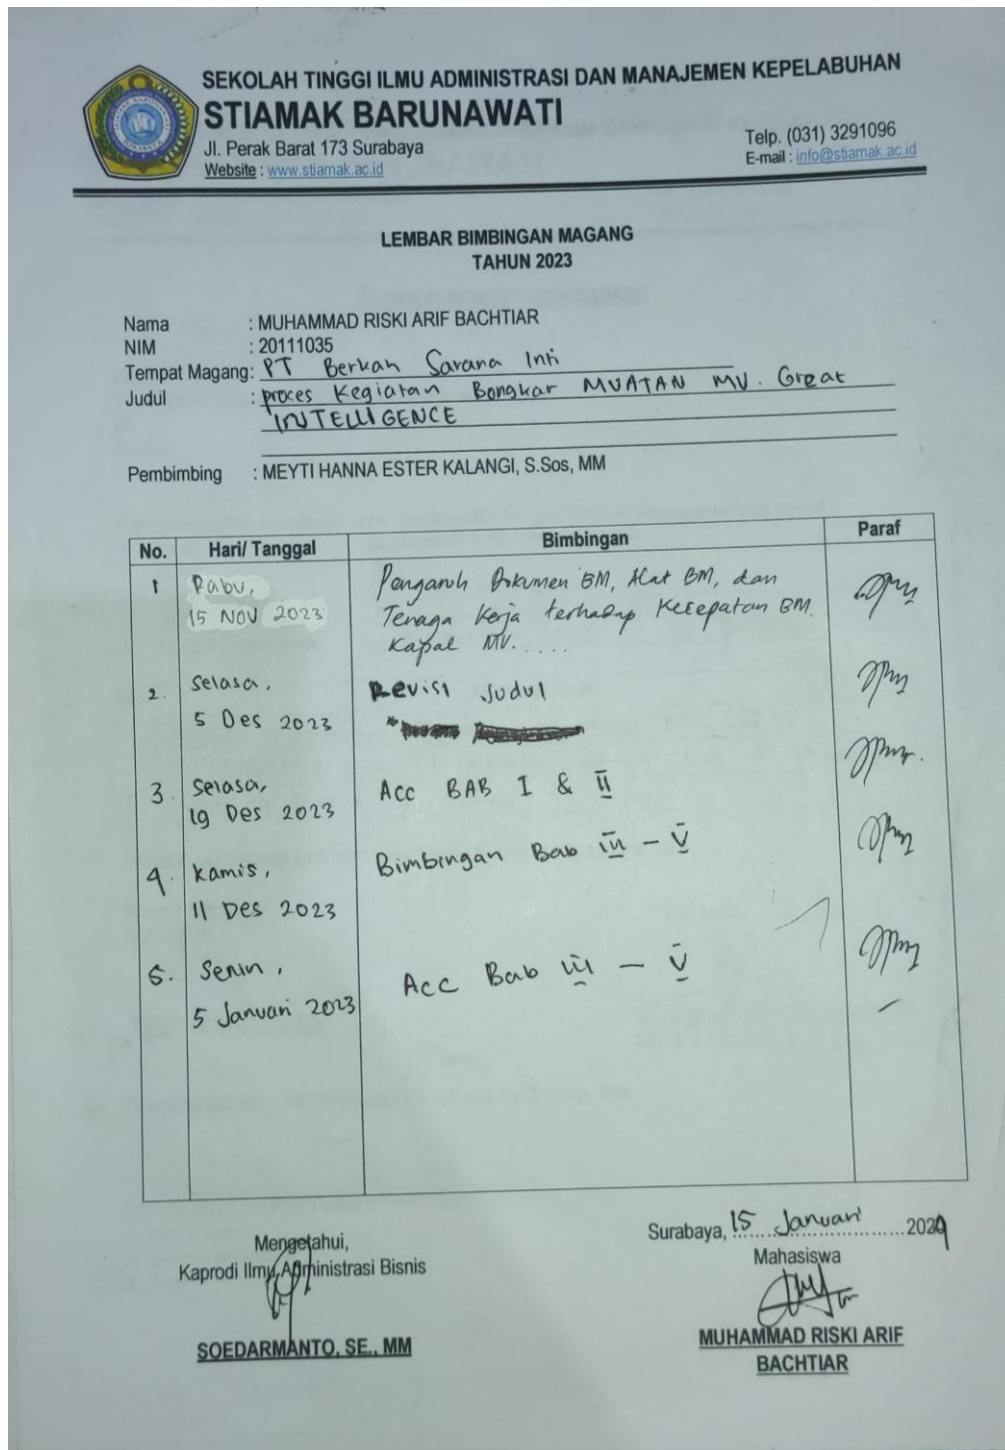 SEKOLAH TINGGI ILMU ADMINISTRASI DAN MANAJEMEN KEPELABUHAN
STIAMAK BARUNAWATI
Jl. Perak Barat 173 Surabaya
Website : www.stiamak.ac.id
Telp. (031) 3291096
E-mail : info@stiamak.ac.id
LEMBAR BIMBINGAN MAGANG
TAHUN 2023
Nama : MUHAMMAD RISKI ARIF BACHTIAR
NIM : 20111035
Tempat Magang: PT Berkah Sarana Inti
Judul : proses Kegiatan Bongkar MUATAN MV. Great
INTELLIGENCE
Pembimbing : MEYTI HANNA ESTER KALANGI, S.Sos, MM
No. Hari/ Tanggal Bimbingan Paraf
1 Rabu, Pengaruh Dokumen BM, Alat BM, dan
15 NOV 2023 Tenaga Kerja terhadap Kecepatan BM.
Kapal MV.....
2. Selasa, Revisi Judul
5 Des 2023
3. Selasa, Acc BAB I & II
19 Des 2023
4. Kamis, Bimbingan Bab III - V
11 Des 2023
5. Senin, Acc Bab III - V
5 Januari 2023
Mengetahui,
Kaprodi Ilmu Administrasi Bisnis
SOEDARMANTO, SE., MM
Surabaya, 15 Januari 2024
Mahasiswa
MUHAMMAD RISKI ARIF
BACHTIAR